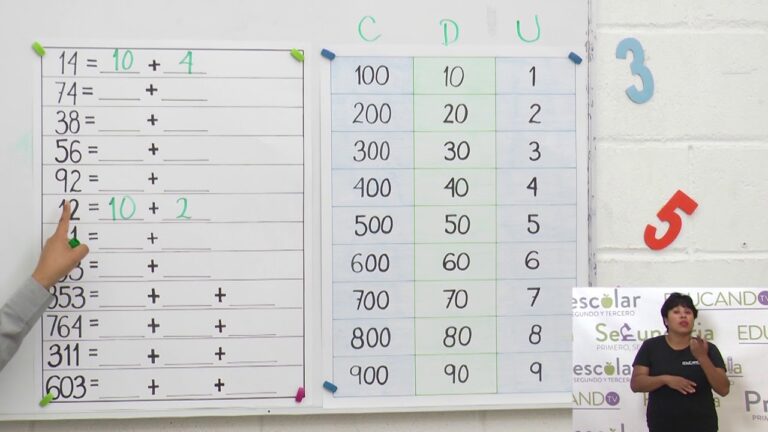 14 = 10 + 4
74 = ___ + ___
38 = ___ + ___
56 = ___ + ___
92 = ___ + ___
12 = 10 + 2
= ___ + ___
= ___ + ___
853 = ___ + ___ + ___
764 = ___ + ___ + ___
311 = ___ + ___ + ___
603 = ___ + ___ + ___
C D U
100 10 1
200 20 2
300 30 3
400 40 4
500 50 5
600 60 6
700 70 7
800 80 8
900 90 9
3
5
escolar
SEGUNDO Y TERCERO
EDUCANDO TV
Secundaria
PRIMERO, SE
EDU
escolar
SEGUNDO Y TERCERO
CANDO TV
Pr